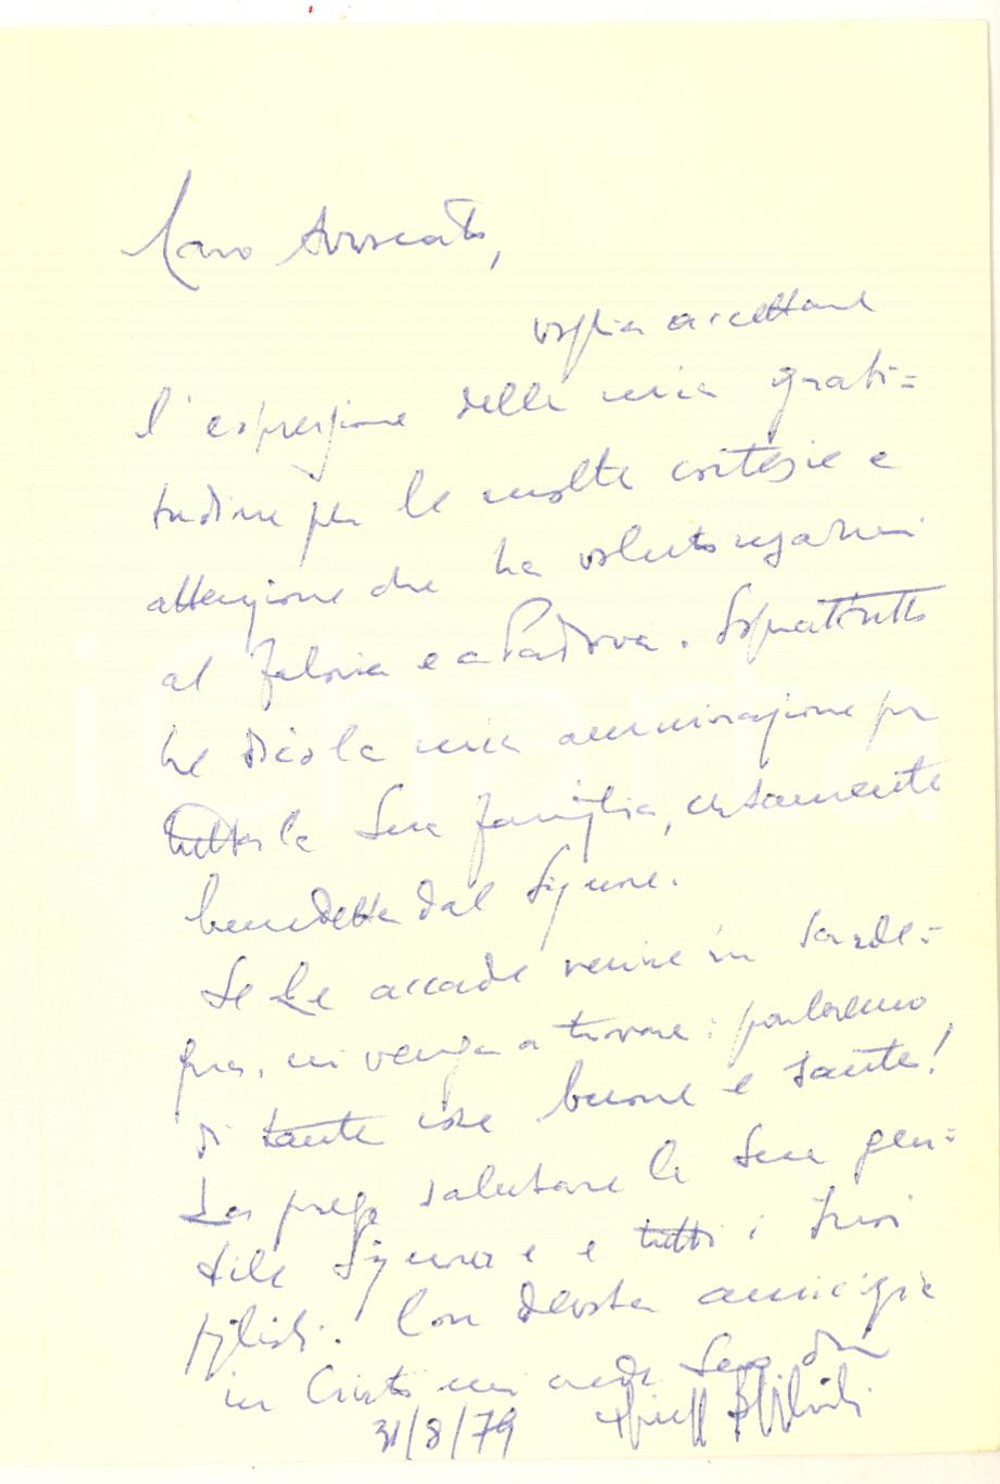 Caro Avvocato,
voglia accettare
l'espressione della mia grati=
tudine per le molte cortesie e
attenzione che ha voluto regalarmi
al Faloria e a Padova. Soprattutto
Le dico la mia ammirazione per
tutta la Sua famiglia, certamente
benedetta dal Signore.
Se Le accade venire in Sarde=
gna, mi venga a trovare: parleremo
di tante cose buone e sante!
La prego salutare la Sua gen=
tile Signora e e tutti i Suoi
figlioli. Con devota amicizia
in Cristo mi creda Suo
31/8/79